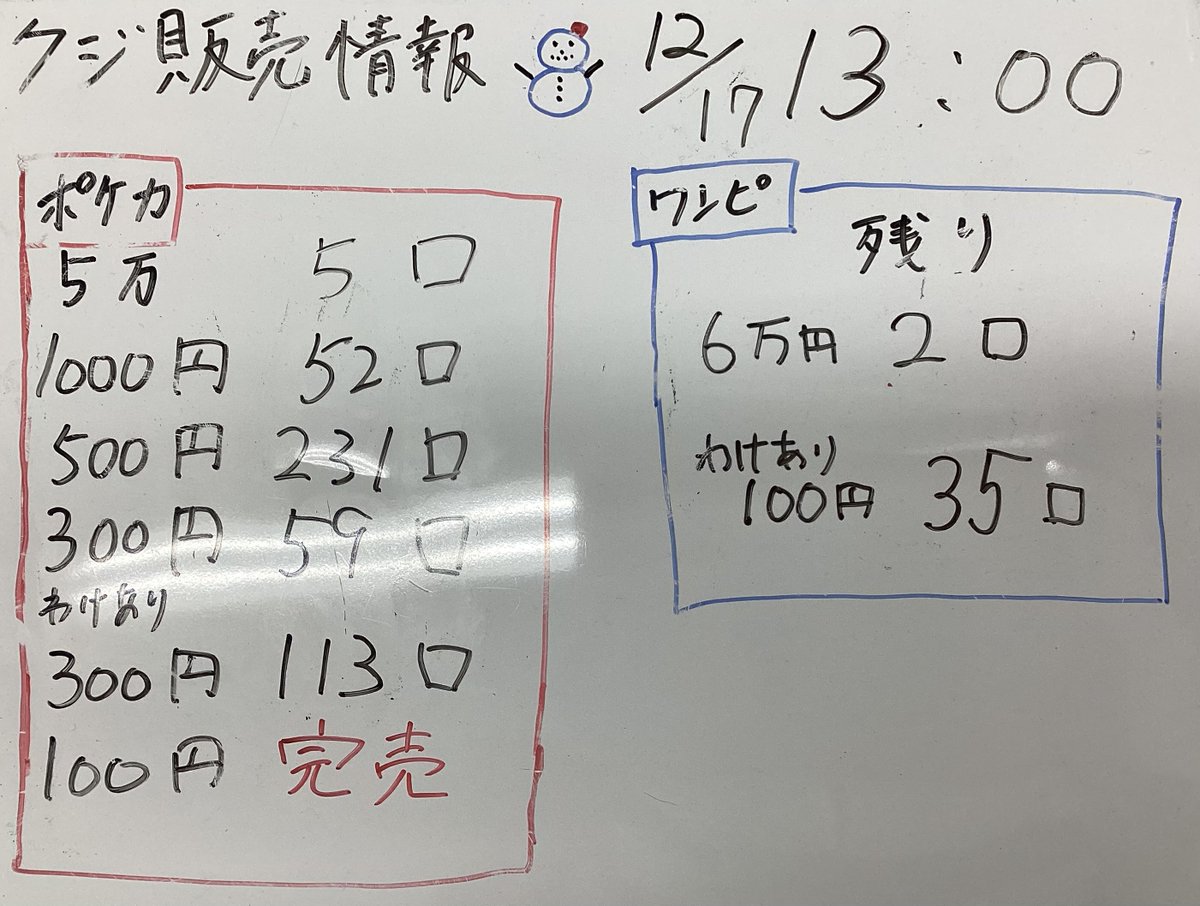 クジ販売情報 12/17 13:00
ポケカ
5万 5口
1000円 52口
500円 231口
300円 59口
わけあり
300円 113口
100円 完売
ワンピ
残り
6万円 2口
わけあり
100円 35口